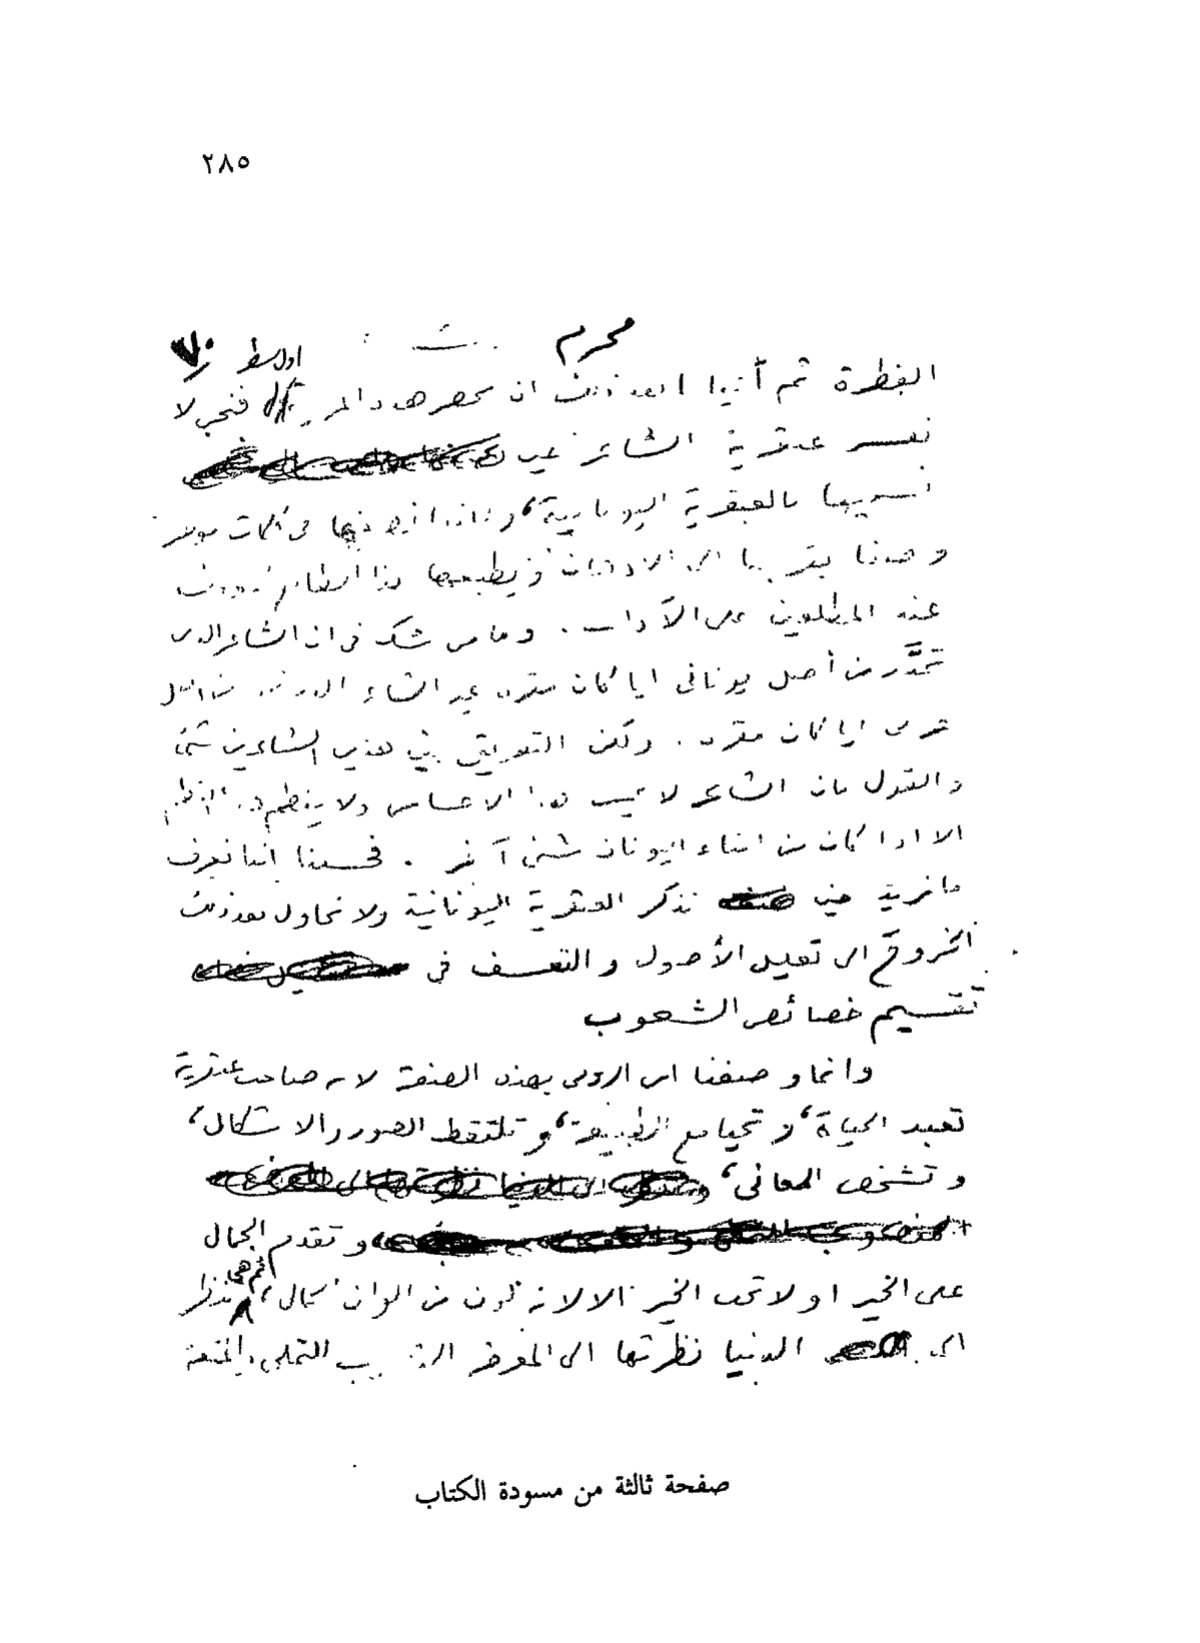 ٢٨٥
محرم
الفطرة ثم أتينا بعد ذلك ان نحصر هذه فنحن لا
نفسر عبقرية الشاعر حين
نسميها بالعبقرية اليونانية، و
وحدنا يقربها الى الأذهان ويطبعها بذا
عند المطلعين على الآداب. وما من شك فى ان الشاعر الذى
تحدَّر من أصل يونانى ايا كان مقره غير الشاعر الذى من اصل
عربى ايا كان مقره. ولكن التفريق بين هذين الشاعرين شئ
والقول بان الشاعر لا يحس هذا الاحساس ولا ينظم هذا النظم
الا اذا كان من ابناء اليونان شئ آخر. فحسبنا اننا نعرف
ما نريد حين نذكر العبقرية اليونانية ولا نحاول بعد ذلك
الخروج الى تعليل الأصول والتعسف فى
تقسيم خصائص الشعوب
وانما وصفنا ابن الرومى بهذه الصفة لانه صاحب عبقرية
تعبد الحياة، وتحيا مع الطبيعة، وتلتقط الصور والاشكال،
وتشخص المعانى،
وتقدم الجمال
على الخير او لا تحب الخير الا لانه لون من الوان الجمال، ثم هى تنظر
الى الدنيا نظرتها الى المعرض التملى والمتعة
صفحة ثالثة من مسودة الكتاب